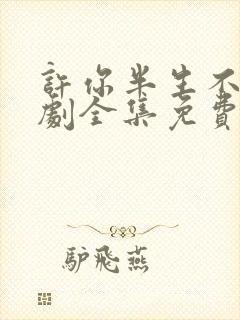 許你半生不
劇全集免費
驴飛燕